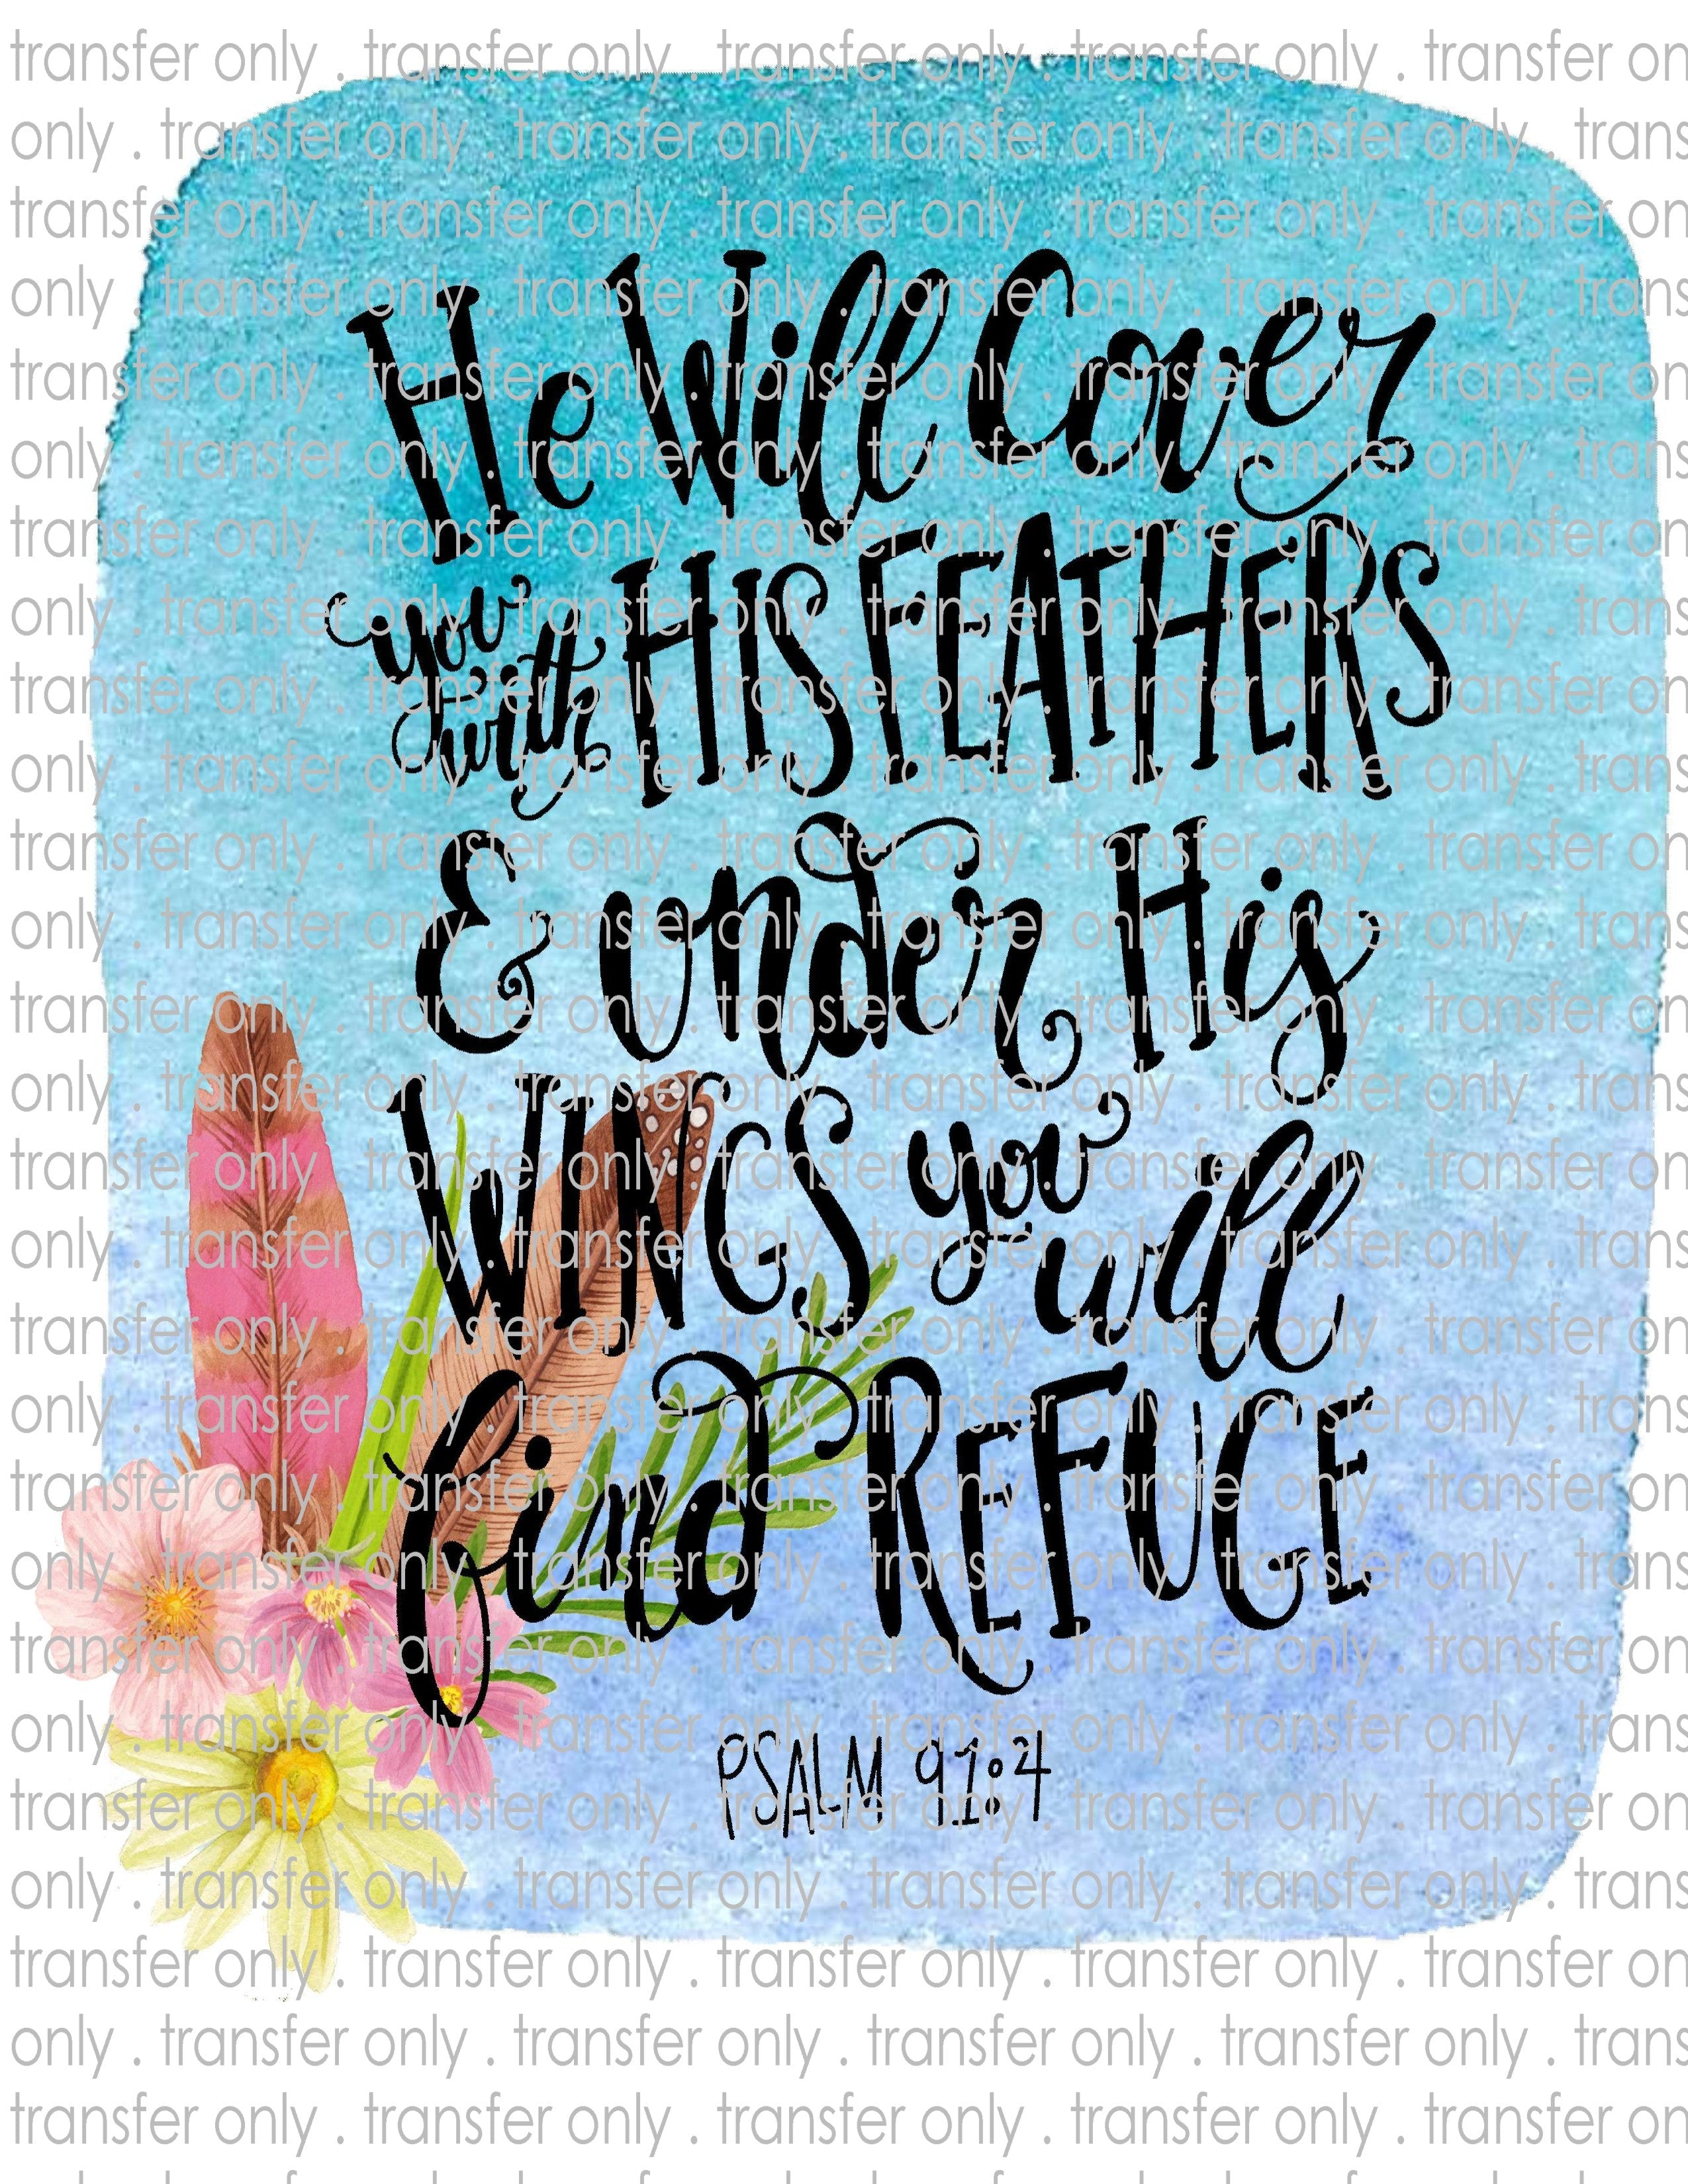 transfer only . transfer only . transfer only . transfer only . transfer on
only . transfer only . transfer only . transfer only . transfer only . trans
He Will Cover
you with HIS FEATHERS
& under His
WINGS you will
find REFUGE
PSALM 91:4